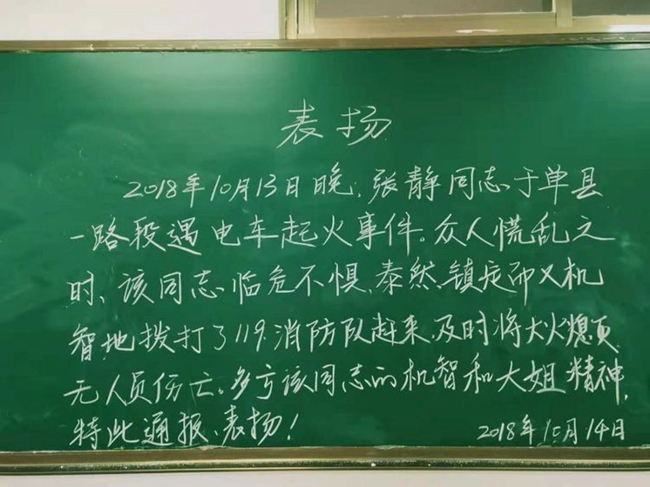 表扬
2018年10月13日晚,张静同志于单县
一路段遇电车起火事件。众人慌乱之
时、该同志临危不惧、泰然镇定而又机
智地拨打了119.消防队赶来、及时将大火熄灭,
无人员伤亡。多亏该同志的机智和大姐精神,
特此通报、表扬!
2018年10月14日